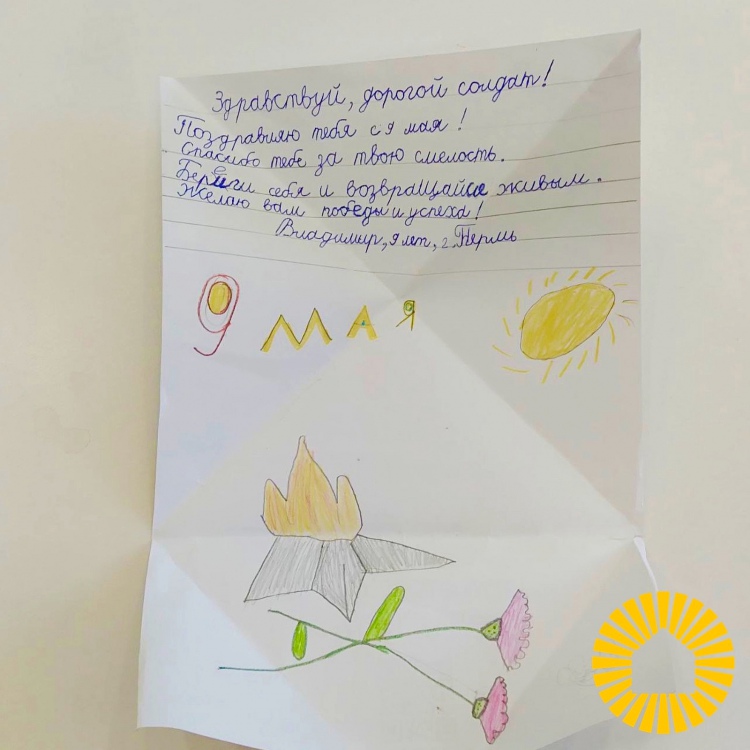 Здравствуй, дорогой солдат!
Поздравляю тебя с 9 мая!
Спасибо тебе за твою смелость.
Береги себя и возвращайся живым.
Желаю вам победы и успеха!
Владимир, 9 лет, г. Пермь
9 МАЯ